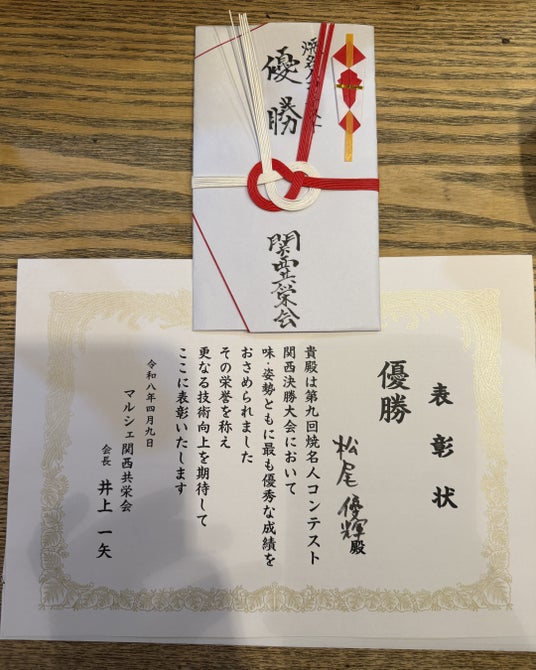 優勝
関西共栄会
表彰状
優勝
松尾 優輝殿
貴殿は第九回焼名人コンテスト
関西決勝大会において
味・姿勢ともに最も優秀な成績を
おさめられました
その栄誉を称え
更なる技術向上を期待して
ここに表彰いたします
令和八年四月九日
マルシェ関西共栄会
会長 井上 一矢